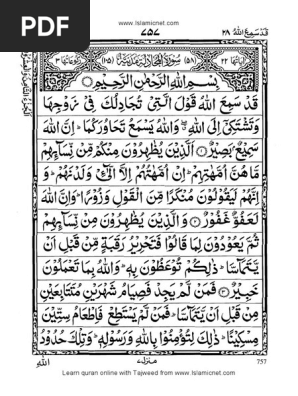 PDF
www.Islamicnet.com
قَدْ سَمِعَ اللّٰهُ ٢٨
٧٥٧
اٰيَاتُهَا ٢٢ (٥٨) سُوْرَةُ الْمُجَادَلَةِ مَدَنِيَّةٌ (١٠٥) رُكُوْعَاتُهَا ٣
بِسْمِ اللّٰهِ الرَّحْمٰنِ الرَّحِيْمِ ○
قَدْ سَمِعَ اللّٰهُ قَوْلَ الَّتِيْ تُجَادِلُكَ فِيْ زَوْجِهَا
وَتَشْتَكِيْٓ اِلَى اللّٰهِ ۖ وَاللّٰهُ يَسْمَعُ تَحَاوُرَكُمَا ۚ اِنَّ اللّٰهَ
سَمِيْعٌۢ بَصِيْرٌ ○ اَلَّذِيْنَ يُظٰهِرُوْنَ مِنْكُمْ مِّنْ نِّسَآىِٕهِمْ
مَّا هُنَّ اُمَّهٰتِهِمْ ۚ اِنْ اُمَّهٰتُهُمْ اِلَّا الّٰٓـِٔيْ وَلَدْنَهُمْ ۚ وَ
اِنَّهُمْ لَيَقُوْلُوْنَ مُنْكَرًا مِّنَ الْقَوْلِ وَزُوْرًا ۚ وَاِنَّ اللّٰهَ
لَعَفُوٌّ غَفُوْرٌ ○ وَالَّذِيْنَ يُظٰهِرُوْنَ مِنْ نِّسَآىِٕهِمْ
ثُمَّ يَعُوْدُوْنَ لِمَا قَالُوْا فَتَحْرِيْرُ رَقَبَةٍ مِّنْ قَبْلِ اَنْ
يَّتَمَآسَّا ۚ ذٰلِكُمْ تُوْعَظُوْنَ بِهٖ ۚ وَاللّٰهُ بِمَا تَعْمَلُوْنَ
خَبِيْرٌ ○ فَمَنْ لَّمْ يَجِدْ فَصِيَامُ شَهْرَيْنِ مُتَتَابِعَيْنِ
مِنْ قَبْلِ اَنْ يَّتَمَآسَّا ۚ فَمَنْ لَّمْ يَسْتَطِعْ فَاِطْعَامُ سِتِّيْنَ
مِسْكِيْنًا ۚ ذٰلِكَ لِتُؤْمِنُوْا بِاللّٰهِ وَرَسُوْلِهٖ ۚ وَتِلْكَ حُدُوْدُ
اللّٰهِ
757
Learn quran online with Tajweed from www.Islamicnet.com